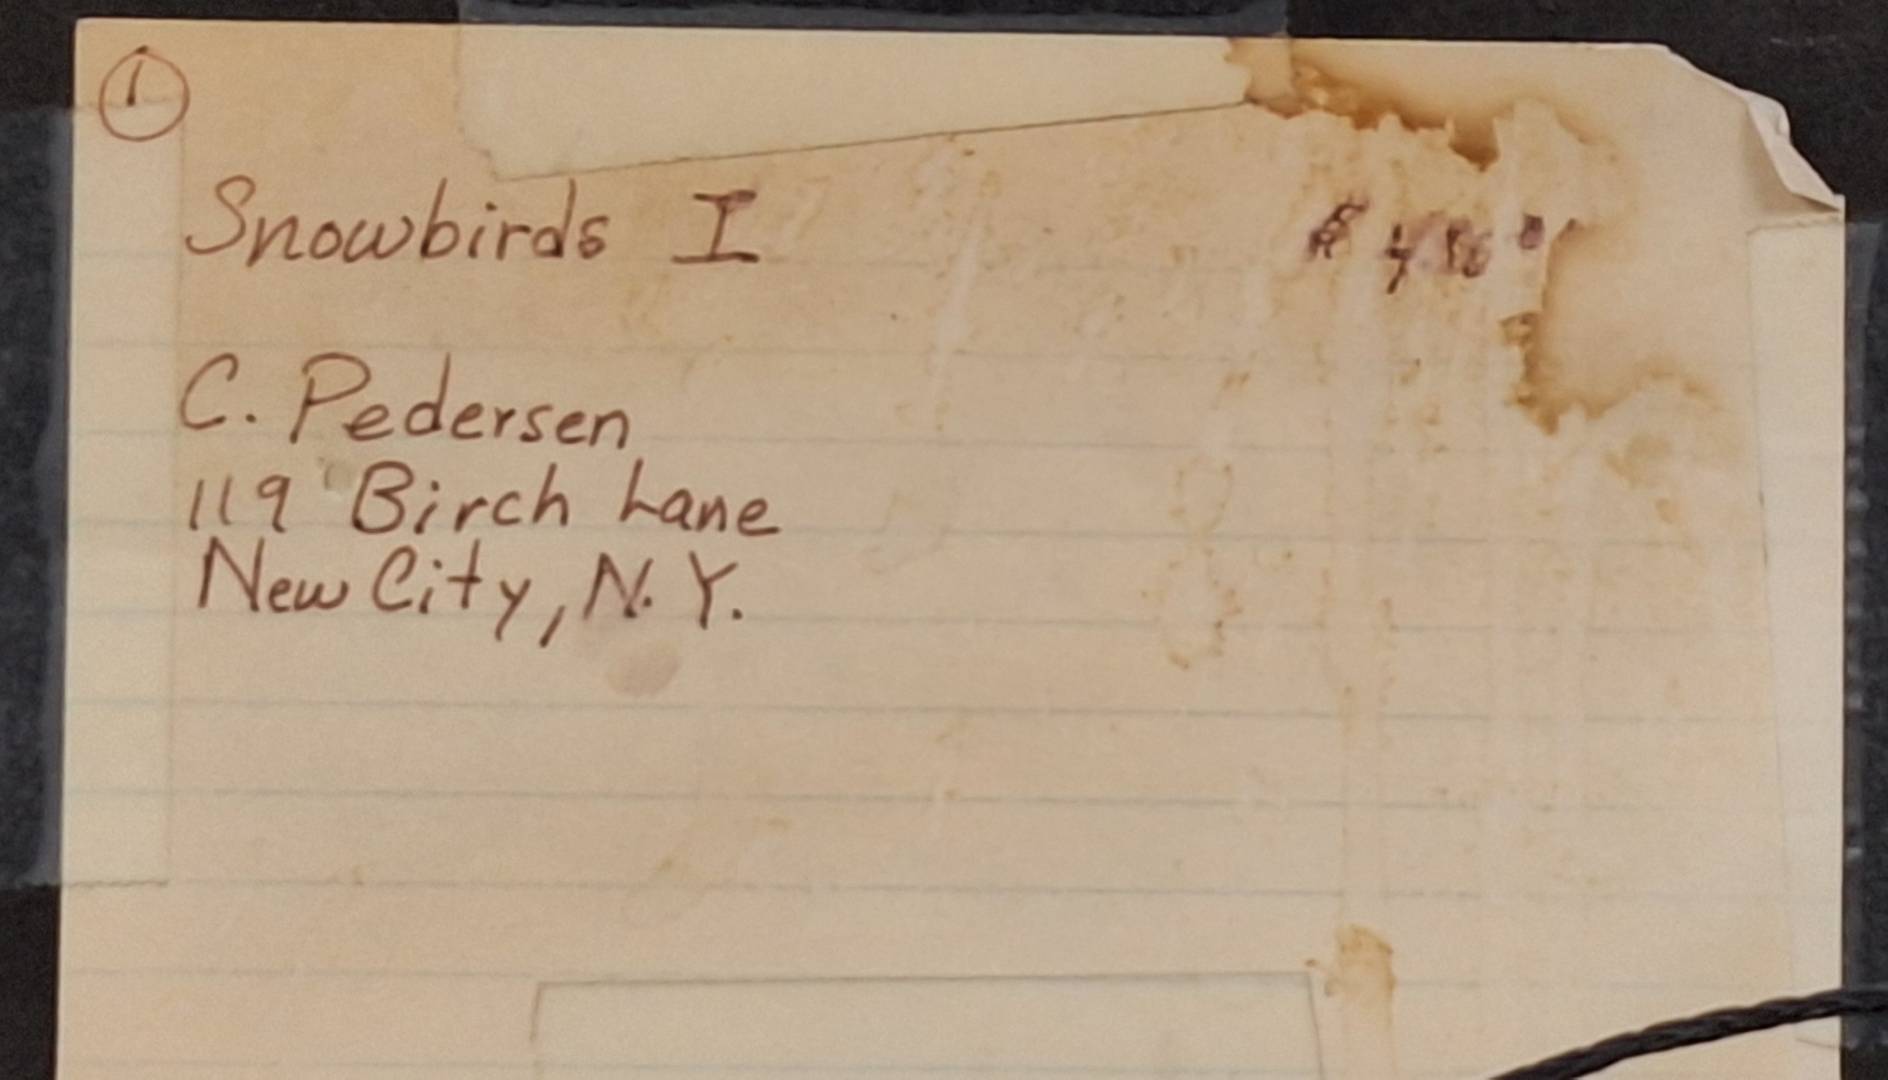 1
Snowbirds I
C. Pedersen
119 Birch Lane
New City, N.Y.